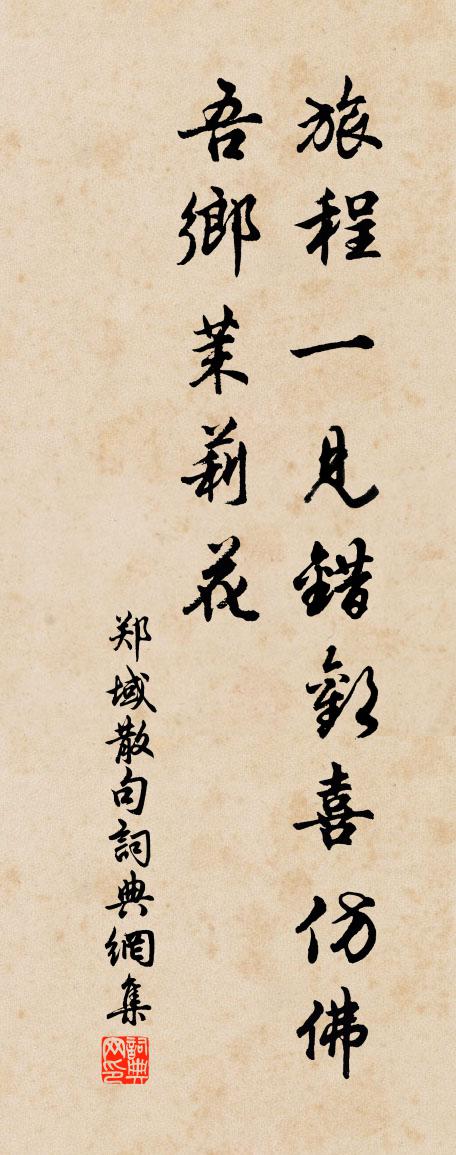 旅程一見錯歡喜仿佛
吾鄉茉莉花
郑域散句詞典網集
詞典网印